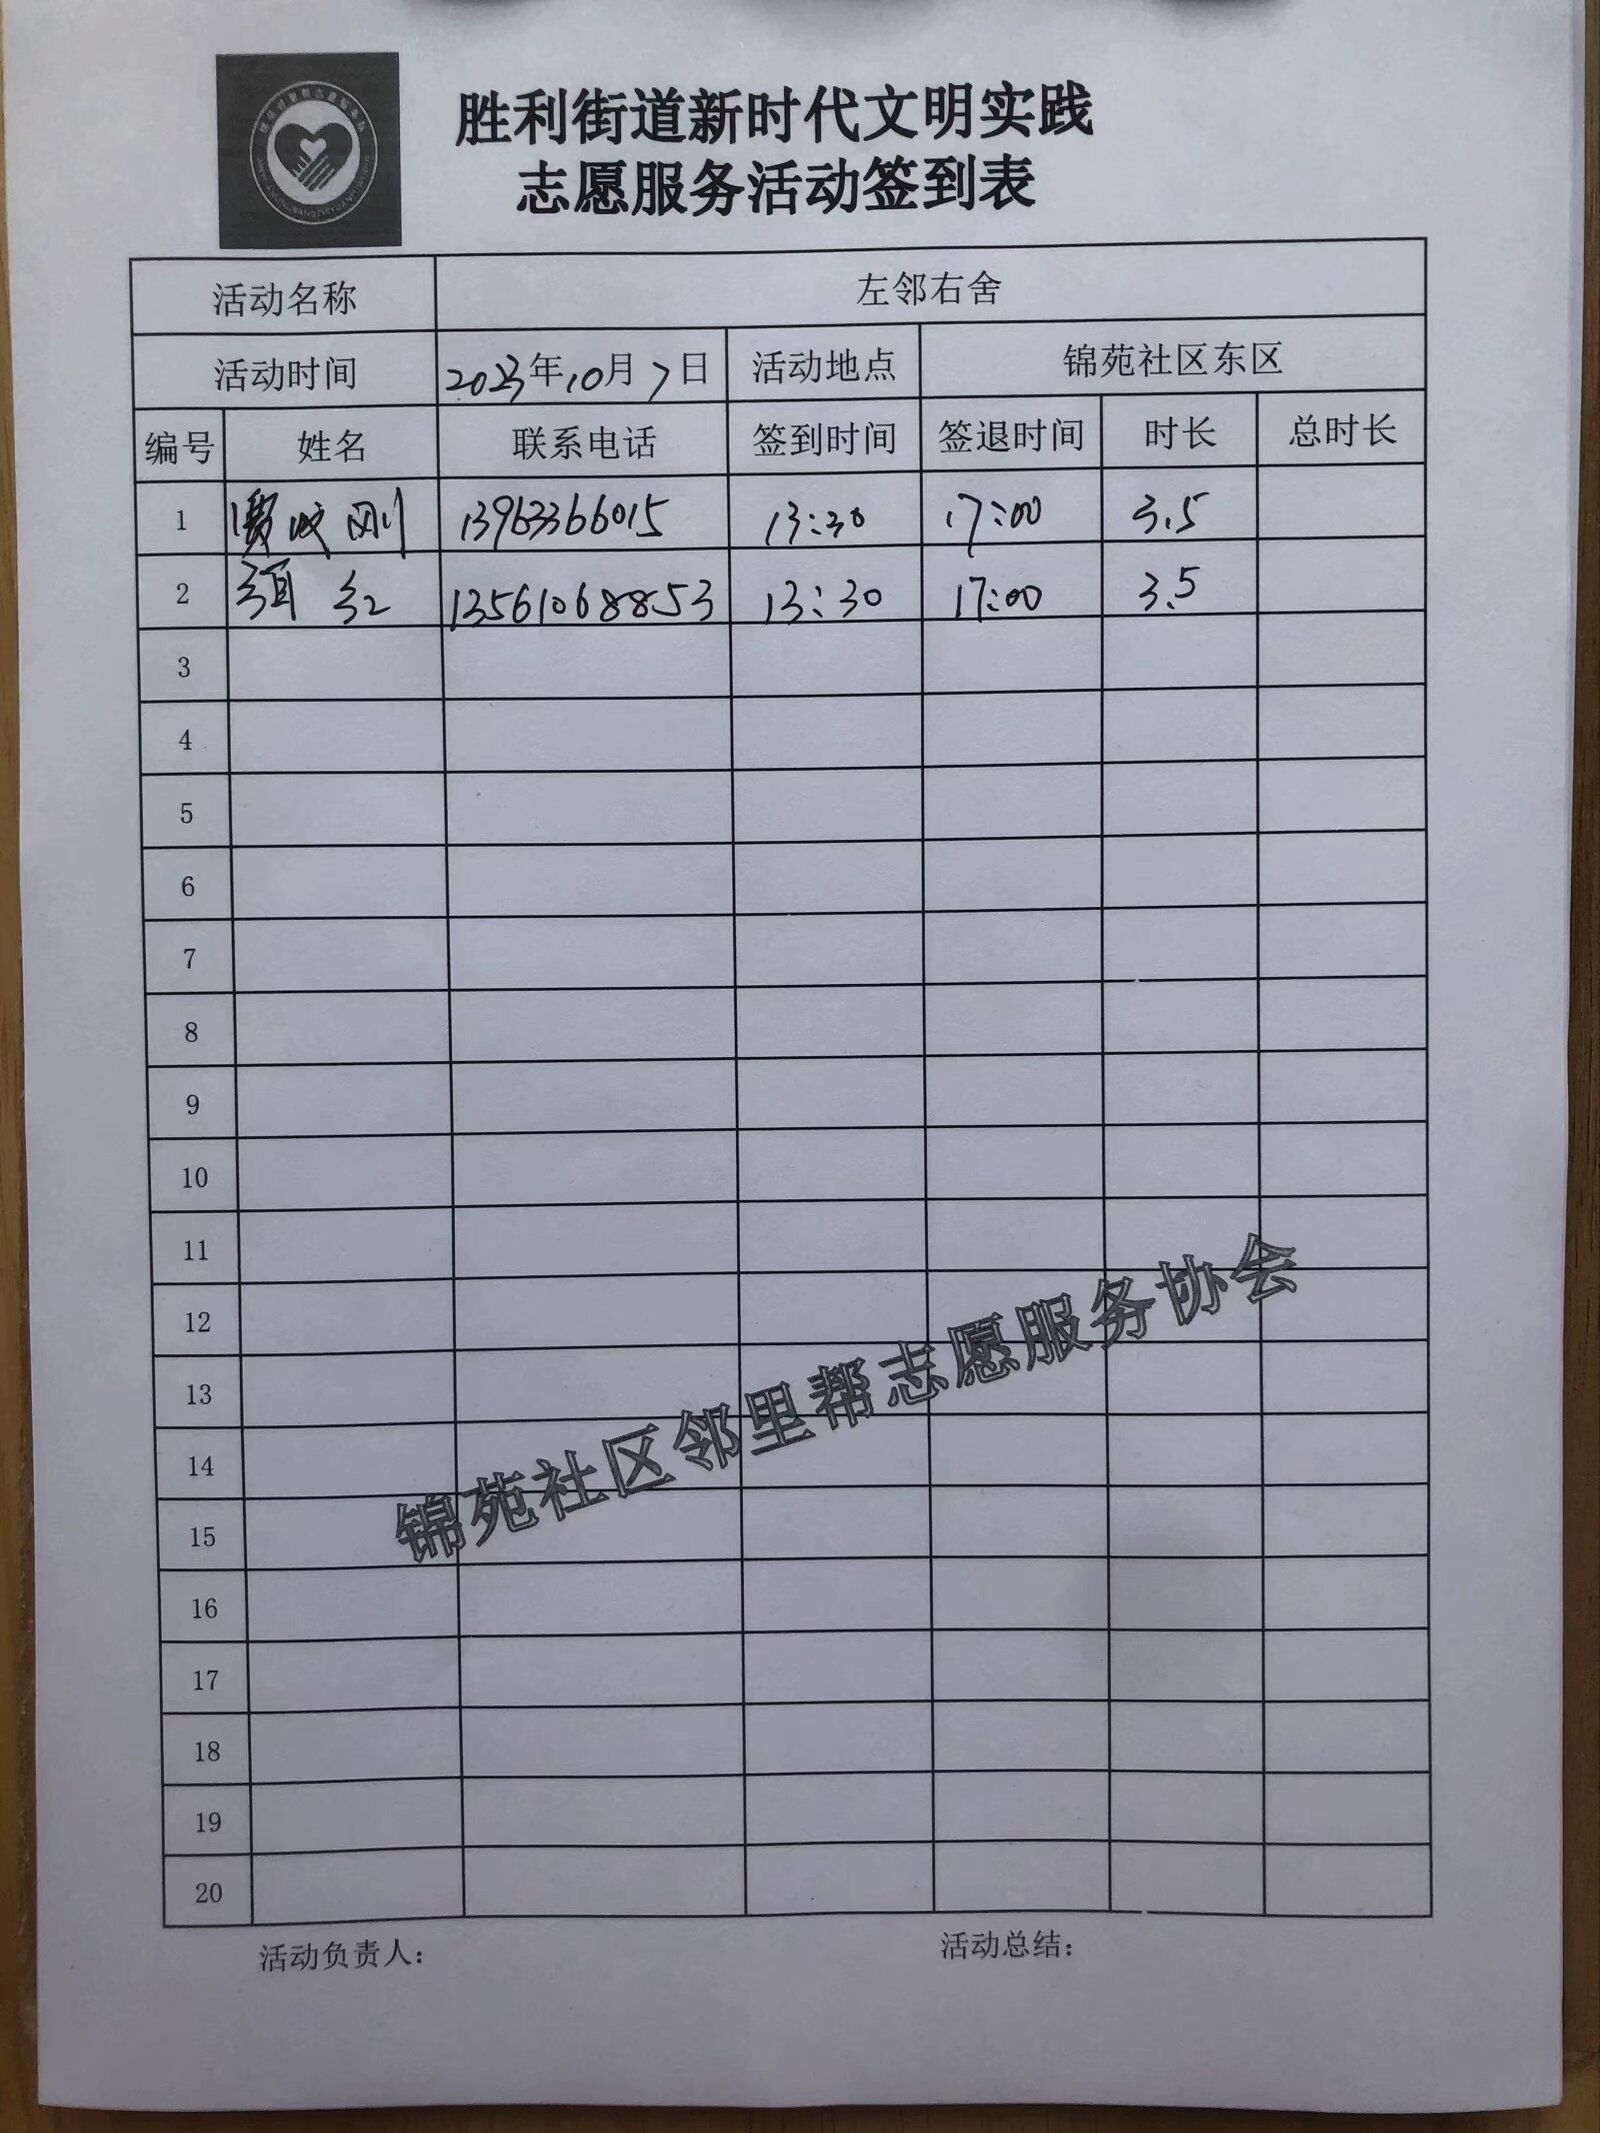 胜利街道新时代文明实践
志愿服务活动签到表
活动名称 左邻右舍
活动时间 2023年10月7日 活动地点 锦苑社区东区
编号 姓名 联系电话 签到时间 签退时间 时长 总时长
1 刚 13963366015 13:30 17:00 3.5
2 红 13561068853 13:30 17:00 3.5
3
4
5
6
7
8
9
10
11
12
13
14
15
16
17
18
19
20
锦苑社区邻里帮志愿服务协会
活动负责人： 活动总结：